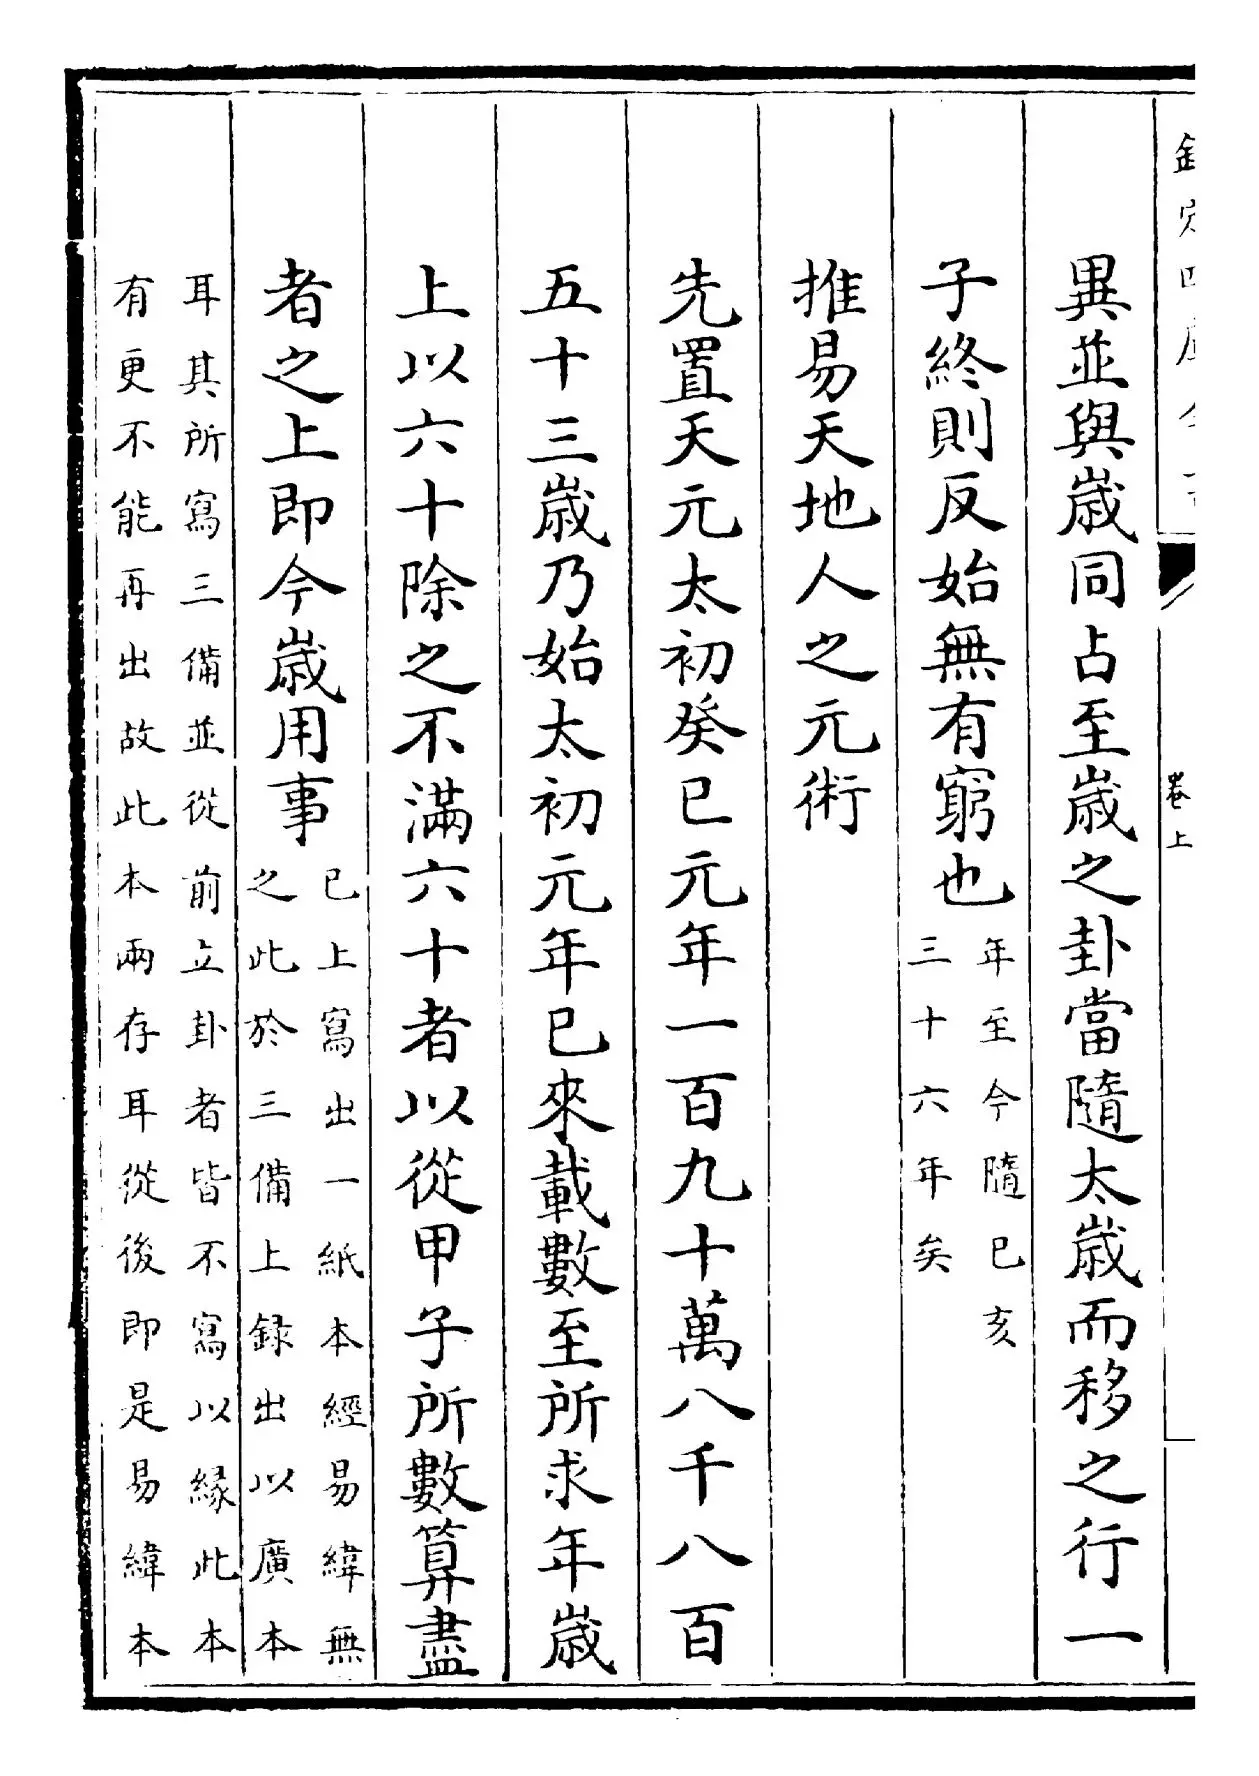 欽定四庫全書
卷上
異並與歲同占至歲之卦當隨太歲而移之行一
子終則反始無有窮也年至今隨巳亥三十六年矣
推易天地人之元術
先置天元太初癸巳元年一百九十萬八千八百
五十三歲乃始太初元年已來載數至所求年歲
上以六十除之不滿六十者以從甲子所數算盡
者之上即今歲用事已上寫出一紙本經易緯無之此於三備上録出以廣本
耳其所寫三備並從前立卦者皆不寫以緣此本
有更不能再出故此本兩存耳從後即是易緯本